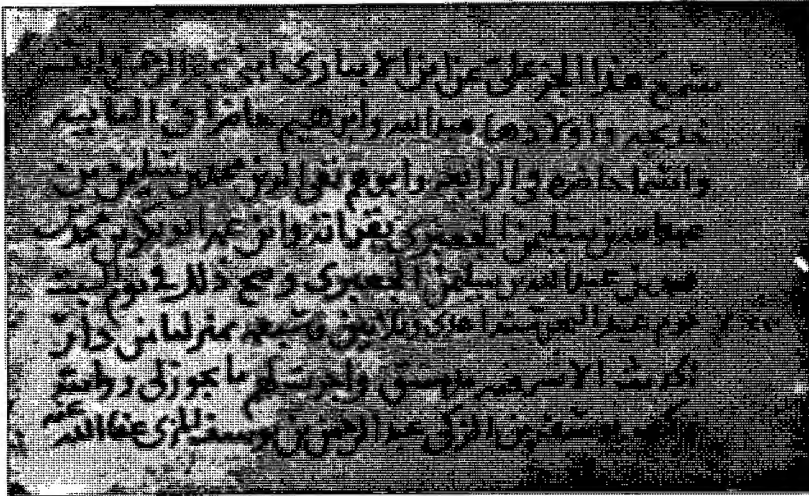 سمع هذا الجزء علي عن ابن الانباري ابني عبد الرحمن وابنته
خديجه واولادها عبدالله وابرهيم حاضرا في الثانيه
حاضره في الرابعه وابوهم تقي الدين محمد بن سليمن بن
عبدالله بن سليمن الجعبري بقراته وابن عمه ابو بكر بن محمد بن
بن عبدالله بن سليمن الجعبري وصح ذلك في يوم السبت
يوم عيد النحر سنة احدى وثلاثين وسبعمه بمنزلنا من دار
الحديث الاشرفيه بدمشق واجزت لهم ما يجوز لي روايته
وكتب يوسف بن الزكي عبد الرحمن بن يوسف المزي عفا الله عنه